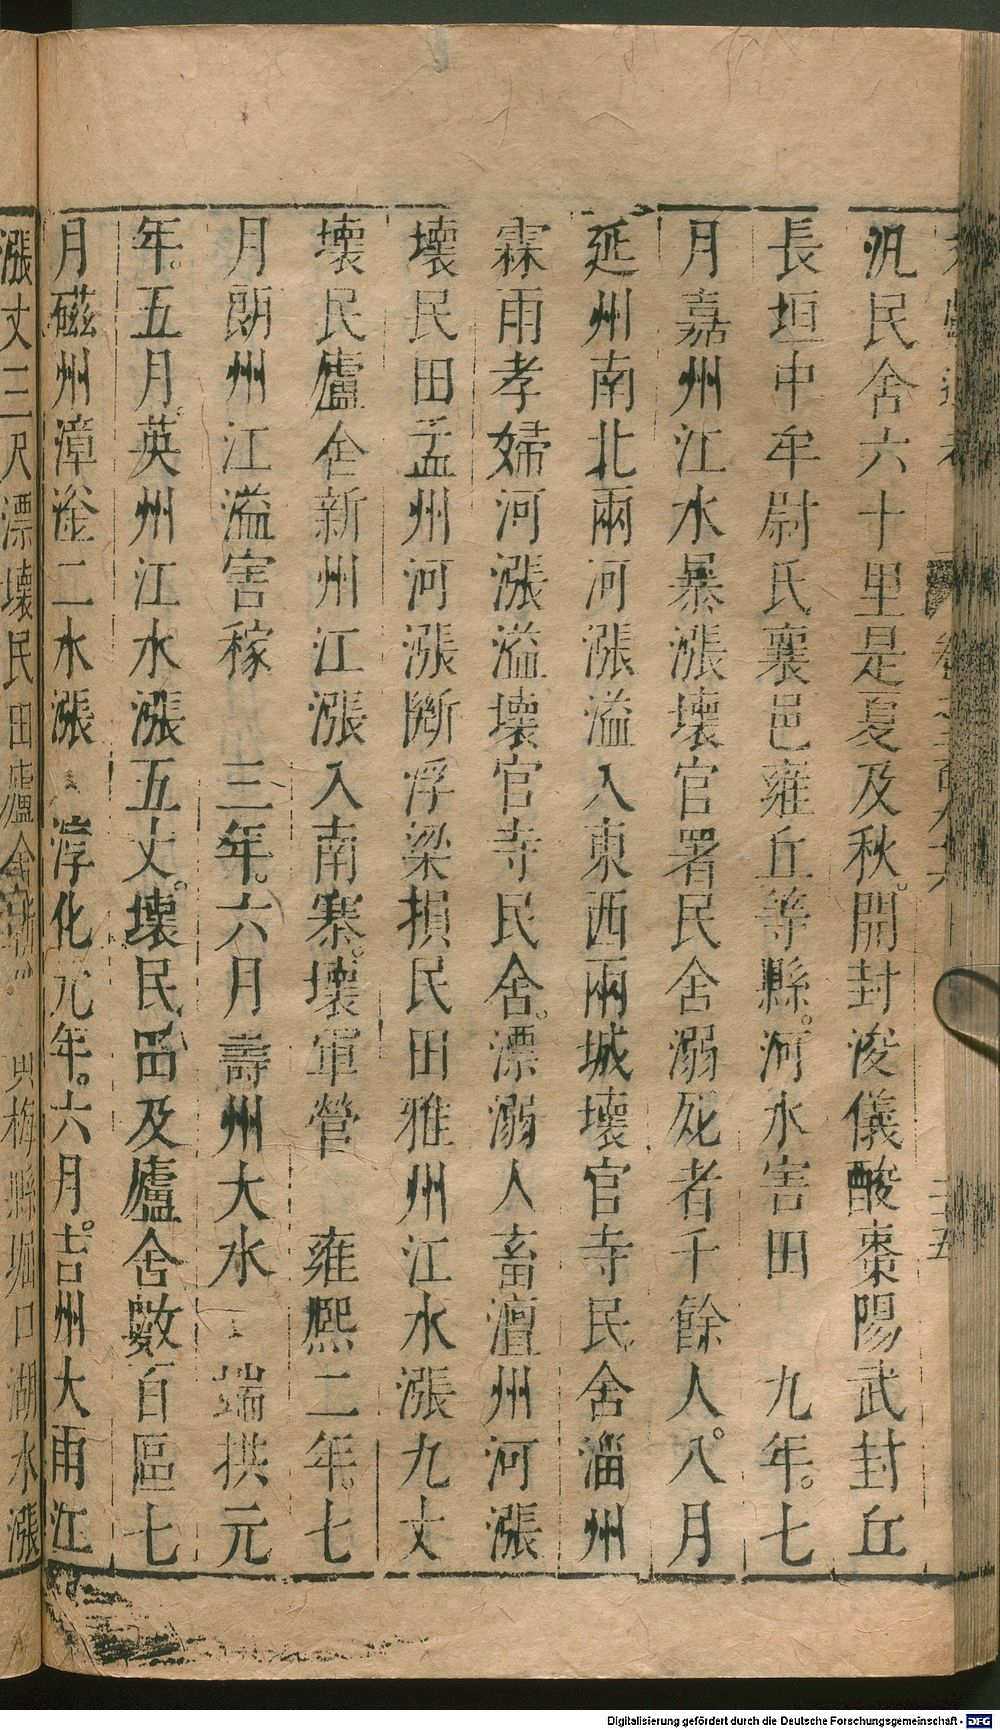 汎民舍六十里是夏及秋。開封浚儀酸棗陽武封丘
長垣中牟尉氏襄邑雍丘等縣。河水害田　九年。七
月嘉州江水暴漲壞官署民舍溺死者千餘人。八月
延州南北兩河漲溢入東西兩城壞官寺民舍淄州
霖雨孝婦河漲溢壞官寺民舍。漂溺人畜澶州河漲
壞民田孟州河漲斷浮梁損民田雅州江水漲九丈
壞民廬舍新州江漲入南寨。壞軍營　雍熙二年。七
月朗州江溢害稼　三年。六月壽州大水　端拱元
年。五月。英州江水漲五丈。壞民田及廬舍數百區七
月磁州漳滏二水漲　淳化元年。六月。吉州大雨江
漲丈三尺漂壞民田廬舍　梅縣堀口湖水漲
Digitalisierung gefördert durch die Deutsche Forschungsgemeinschaft - DFG